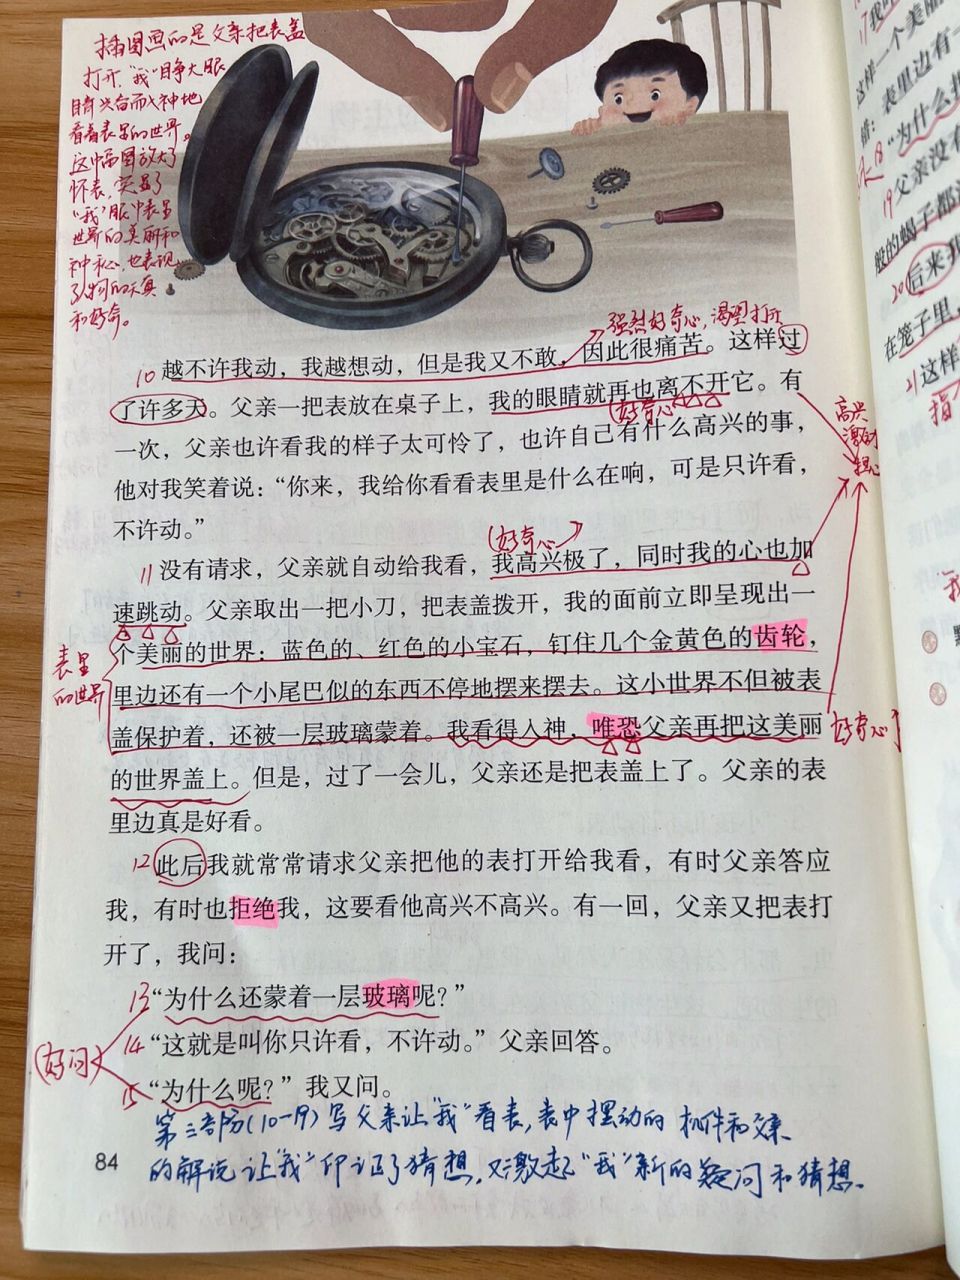 插图画的是父亲把表盖
打开,“我”睁大眼
睛兴奋而又神地
看着表里的世界。
这幅图放大了
怀表,突显了
“我”眼中表里
世界的美丽和
神秘,也表现
了人物的天真
和好奇。
强烈好奇心,渴望打开
10 越不许我动,我越想动,但是我又不敢,因此很痛苦。这样过
了许多天。父亲一把表放在桌子上,我的眼睛就再也离不开它。有
(好奇心)
高兴
激动
担心
一次,父亲也许看我的样子太可怜了,也许自己有什么高兴的事,
他对我笑着说:“你来,我给你看看表里是什么在响,可是只许看,
不许动。”
(好奇心)
11 没有请求,父亲就自动给我看,我高兴极了,同时我的心也加
速跳动。父亲取出一把小刀,把表盖拨开,我的面前立即呈现出一
表里
的世界
个美丽的世界:蓝色的、红色的小宝石,钉住几个金黄色的齿轮,
里边还有一个小尾巴似的东西不停地摆来摆去。这小世界不但被表
盖保护着,还被一层玻璃蒙着。我看得入神,唯恐父亲再把这美丽
好奇心
的世界盖上。但是,过了一会儿,父亲还是把表盖上了。父亲的表
里边真是好看。
12 此后我就常常请求父亲把他的表打开给我看,有时父亲答应
我,有时也拒绝我,这要看他高兴不高兴。有一回,父亲又把表打
开了,我问:
13 “为什么还蒙着一层玻璃呢?”
14 “这就是叫你只许看,不许动。”父亲回答。
(好问)
15 “为什么呢?”我又问。
第三部分(10-19)写父亲让“我”看表,表中摆动的机件和父亲
的解说让“我”印证了猜想,又激起了“我”新的疑问和猜想。
84
17
这样一个美丽
表里边有一
“为什么把
18
19 父亲没有
般的蝎子都
20 后来我
在笼子里,
21 这样
指